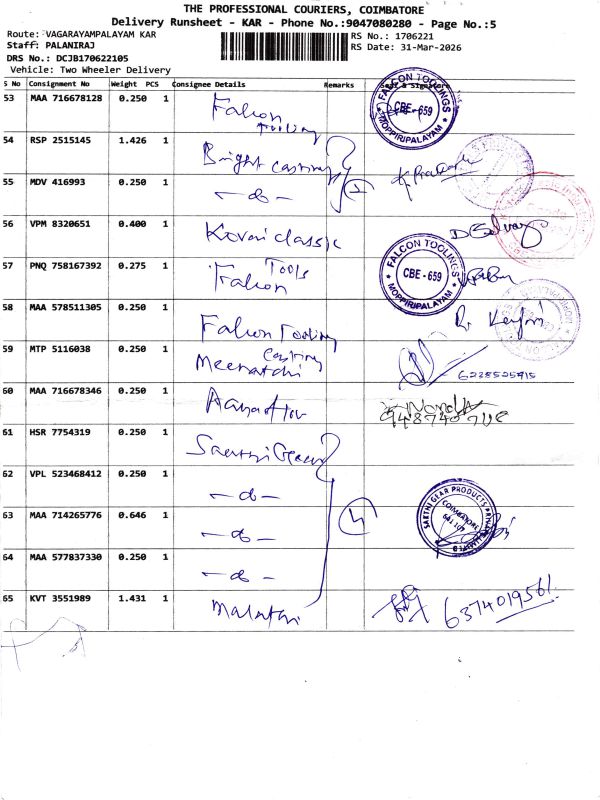 THE PROFESSIONAL COURIERS, COIMBATORE
Delivery Runsheet - KAR - Phone No.:9047080280 - Page No.:5
Route: VAGARAYAMPALAYAM KAR
RS No.: 1706221
Staff: PALANIRAJ
RS Date: 31-Mar-2026
DRS No.: DCJB170622105
Vehicle: Two Wheeler Delivery
S No Consignment No Weight PCS Consignee Details Remarks Seal & Signature
53 MAA 716678128 0.250 1 Falcon Tooling
FALCON TOOLINGS CBE - 659 MOPPIRIPALAYAM
54 RSP 2515145 1.426 1 Bright casting
55 MDV 416993 0.250 1 - do -
56 VPM 8320651 0.400 1 Kovai classic
57 PNQ 758167392 0.275 1 Falcon Tools
FALCON TOOLINGS CBE - 659 MOPPIRIPALAYAM
58 MAA 578511305 0.250 1 Falcon Tooling
59 MTP 5116038 0.250 1 Meenatchi casting
60 MAA 716678346 0.250 1
61 HSR 7754319 0.250 1 Sakthi Gear
62 VPL 523468412 0.250 1 - do -
63 MAA 714265776 0.646 1 - do -
SAKTHI GEAR PRODUCTS PRIVATE LIMITED COIMBATORE
64 MAA 577837330 0.250 1 - do -
65 KVT 3551989 1.431 1 Malathi
6374019561